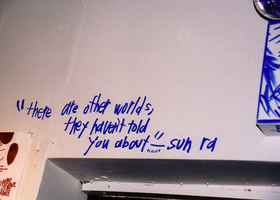 "there are other worlds,
they haven't told
you about" – sun ra